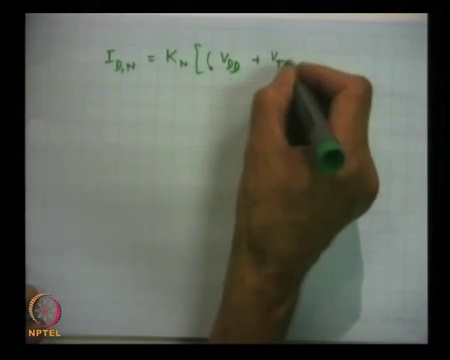 I_{D,N} = K_N [ ( V_{DD} + V_T
NPTEL